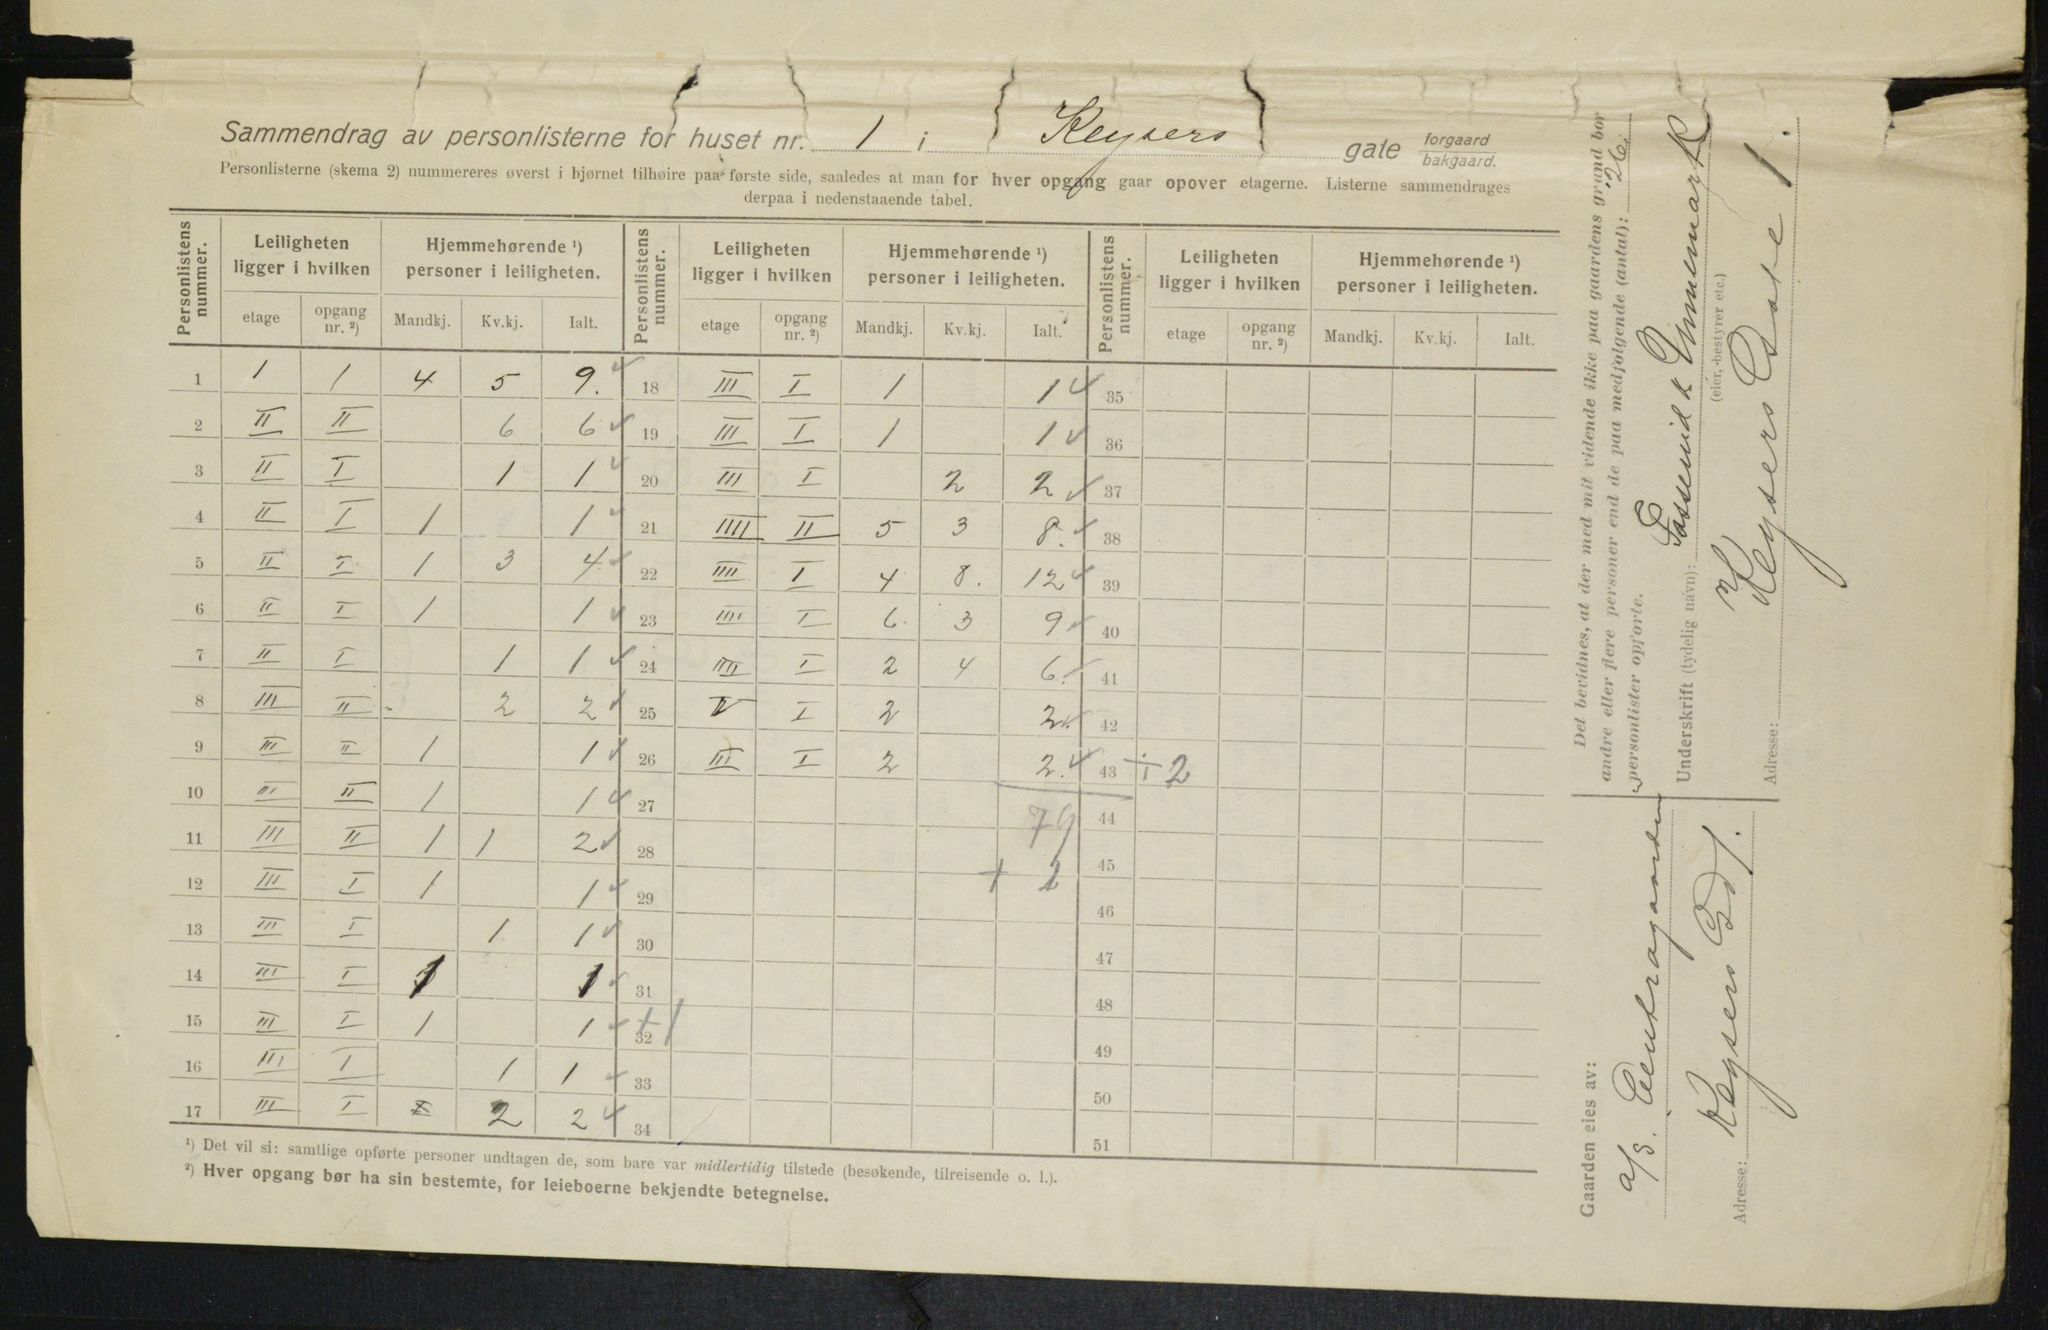 Sammendrag av personlisterne for huset nr. 1 i Keysers gate forgaard bakgaard.
Personlisterne (skema 2) nummereres øverst i hjørnet tilhøire paa første side, saaledes at man for hver opgang gaar opover etagerne. Listerne sammendrages
derpaa i nedenstaaende tabel.
Personlistens nummer. Leiligheten ligger i hvilken Hjemmehørende ¹) personer i leiligheten. Personlistens nummer. Leiligheten ligger i hvilken Hjemmehørende ¹) personer i leiligheten. Personlistens nummer. Leiligheten ligger i hvilken Hjemmehørende ¹) personer i leiligheten.
etage opgang nr. ²) Mandkj. Kv.kj. Ialt. etage opgang nr. ²) Mandkj. Kv.kj. Ialt. etage opgang nr. ²) Mandkj. Kv.kj. Ialt.
1 1 1 4 5 9. 18 III I 1 1 35
2 II II 6 6 19 III I 1 1 36
3 II I 1 1 20 III I 2 2 37
4 II I 1 1 21 IIII II 5 3 8. 38
5 II I 1 3 4 22 IIII I 4 8. 12 39
6 II I 1 1 23 IIII I 6 3 9 40
7 II I 1 1 24 IIII I 2 4 6. 41
8 III II 2 2 25 V I 2 2 42
9 III II 1 1 26 III I 2 2. 43 ÷ 2
10 III II 1 1 27 79 44
11 III II 1 1 2 28 + 2 45
12 III I 1 1 29 46
13 III I 1 1 30 47
14 III I 1 1 31 48
15 III I 1 1 32 + 1 49
16 III I 1 1 33 50
17 III I 2 2 34 51
¹) Det vil si: samtlige opførte personer undtagen de, som bare var midlertidig tilstede (besøkende, tilreisende o. l.).
²) Hver opgang bør ha sin bestemte, for leieboerne bekjendte betegnelse.
Det bevidnes, at der med mit vidende ikke paa gaardens grund bor
andre eller flere personer end de paa medfølgende (antal): 26
personlister opførte.
Underskrift (tydelig navn):
(eier, bestyrer etc.)
Adresse: Keysers Gate 1.
Gaarden eies av:
a/s. Centralgaarden
Adresse: Keysers Gd 1.